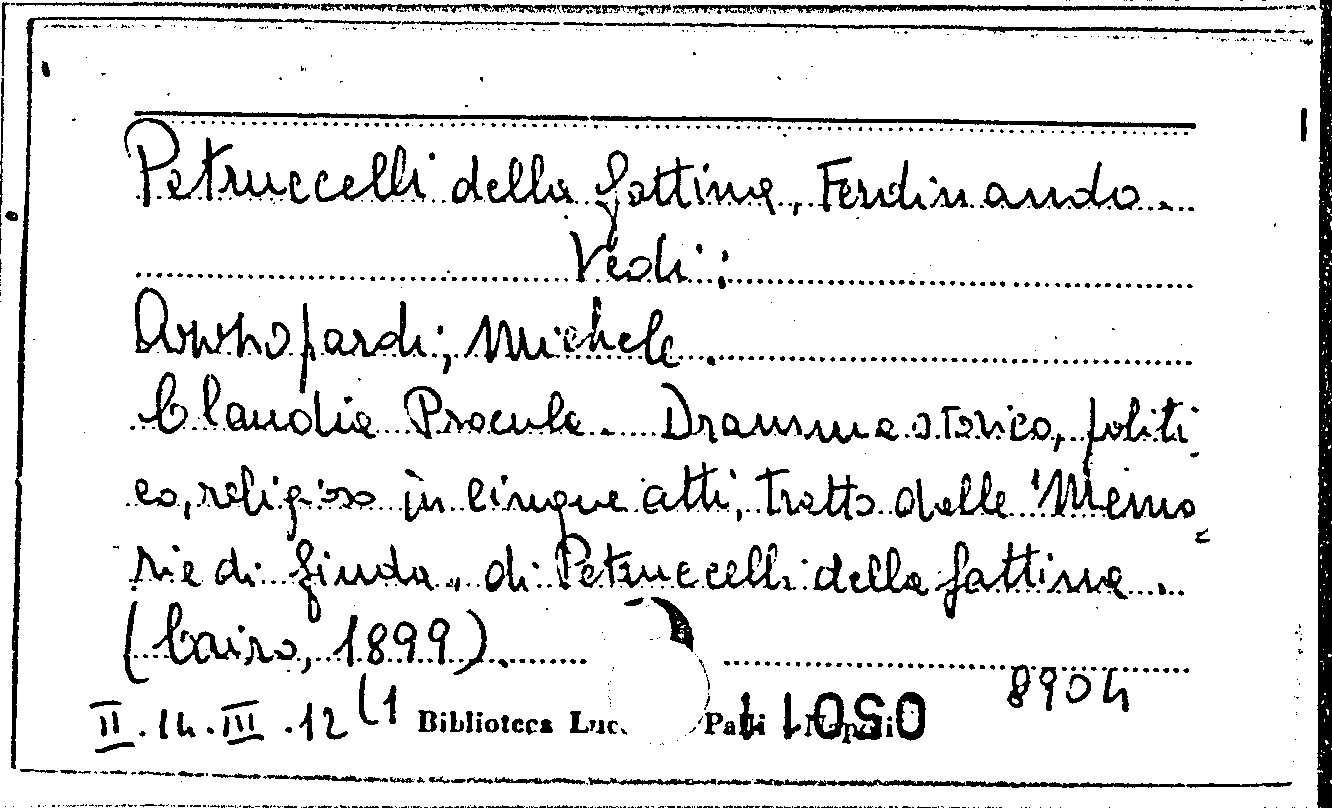 Petruccelli della Gattina, Ferdinando.
Vedi:
Michele.
Claudia Procula. Dramma storico, politi
co, religioso in cinque atti, tratto dalle "Memo
rie di Giuda" di Petruccelli della Gattina.
(Cairo, 1899).
8904
II.14.III.12(1 Biblioteca Luc Palli Napoli